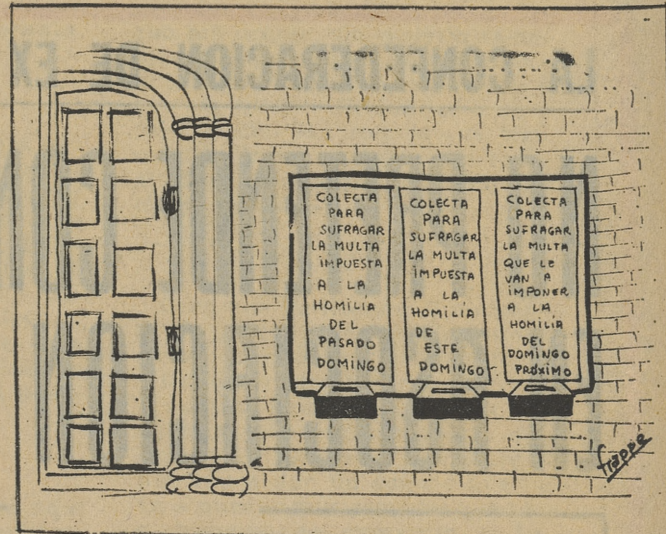 COLECTA
PARA
SUFRAGAR
LA MULTA
IMPUESTA
A LA
HOMILÍA
DEL
PASADO
DOMINGO
COLECTA
PARA
SUFRAGAR
LA MULTA
IMPUESTA
A LA
HOMILÍA
DE
ESTE
DOMINGO
COLECTA
PARA
SUFRAGAR
LA MULTA
QUE LE
VAN A
IMPONER
A LA
HOMILÍA
DEL
DOMINGO
PRÓXIMO